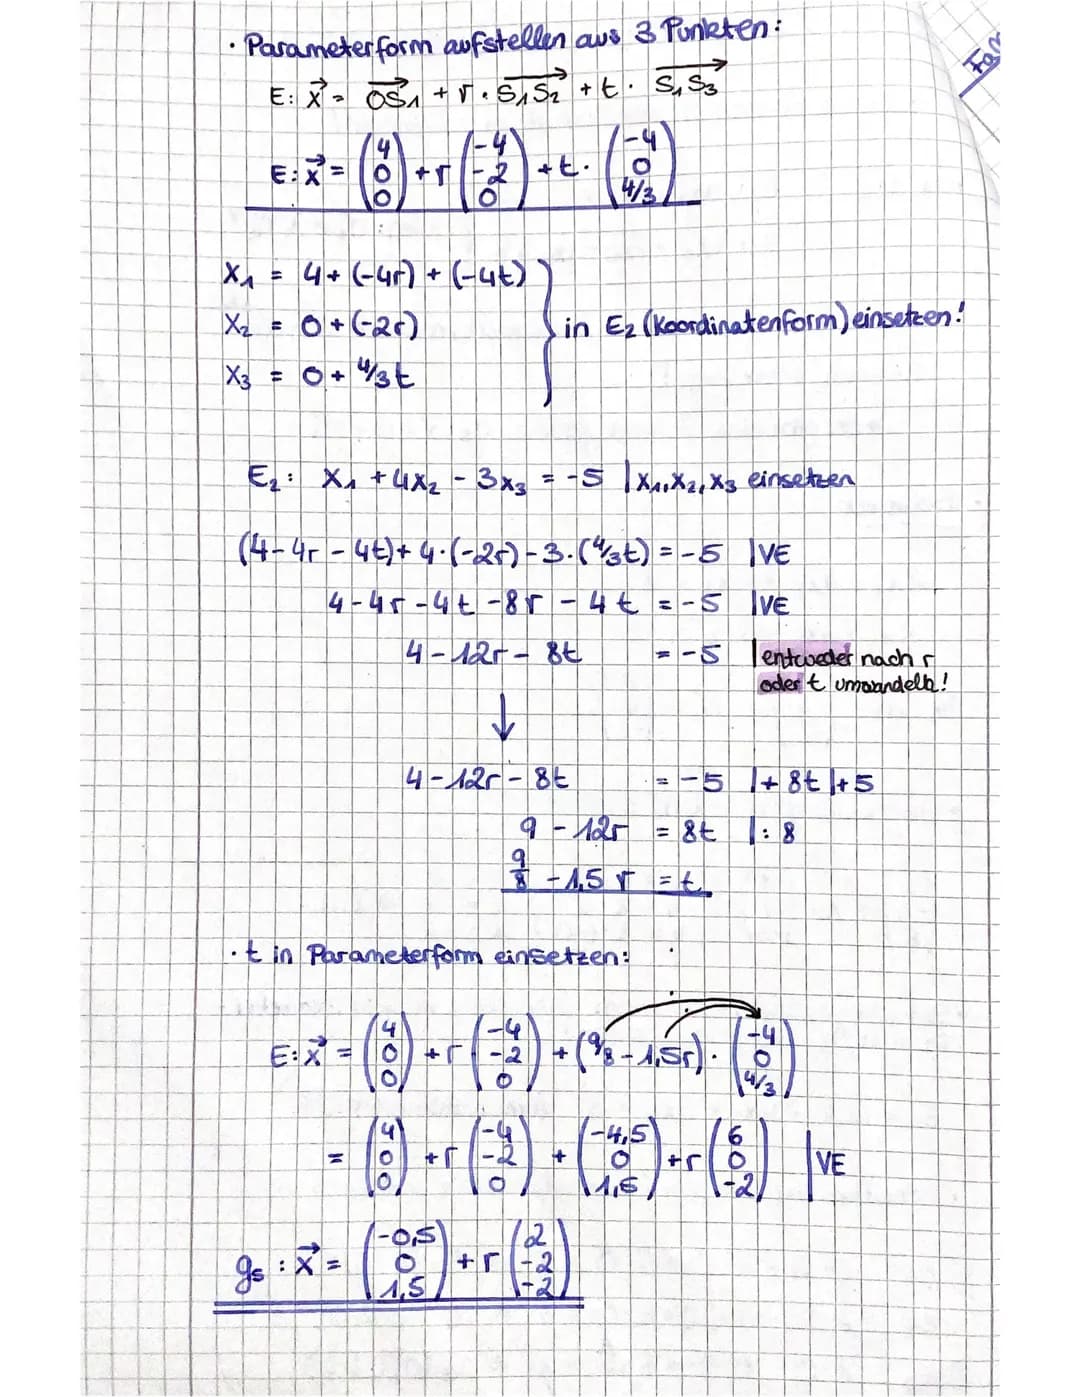 · Parameterform aufstellen aus 3 Punkten:
Fa
E: x⃗ = OS₁ + r · S₁S₂ + t · S₁S₃
E: x⃗ = (4 0 0) + r (-4 -2 0) + t · (-4 0 4/3)
X₁ = 4 + (-4r) + (-4t)
X₂ = 0 + (-2r)
in E₂ (Koordinatenform) einsetzen!
X₃ = 0 + 4/3t
E₂: X₁ + 4X₂ - 3X₃ = -5 | X₁, X₂, X₃ einsetzen
(4-4r-4t) + 4·(-2r) - 3·(4/3t) = -5 |VE
4-4r-4t-8r-4t = -5 |VE
4-12r-8t = -5 | entweder nach r
oder t umwandeln!
↓
4-12r-8t = -5 |+8t |+5
9-12r = 8t |:8
9/8 - 1,5 r = t
· t in Parameterform einsetzen:
E: x⃗ = (4 0 0) + r (-4 -2 0) + (9/8 - 1,5r) · (-4 0 4/3)
= (4 0 0) + r (-4 -2 0) + (-4,5 0 1,5) + r (6 0 -2) |VE
gs: x⃗ = (-0,5 0 1,5) + r (2 -2 -2)